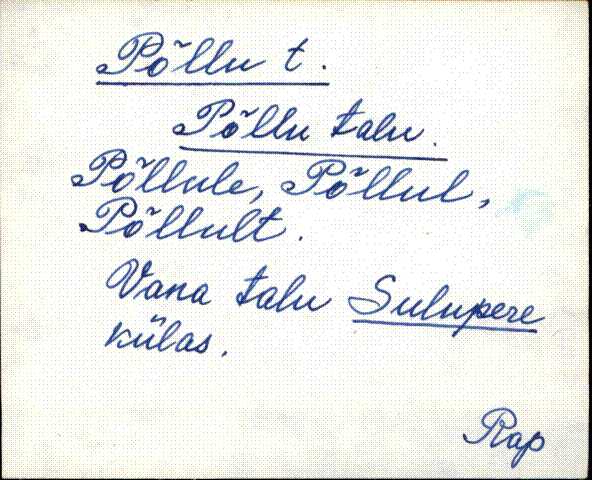 Põllu t.
Põllu talu.
Põllule, Põllul,
Põllult.
Vana talu Sulupere
külas.
Rap